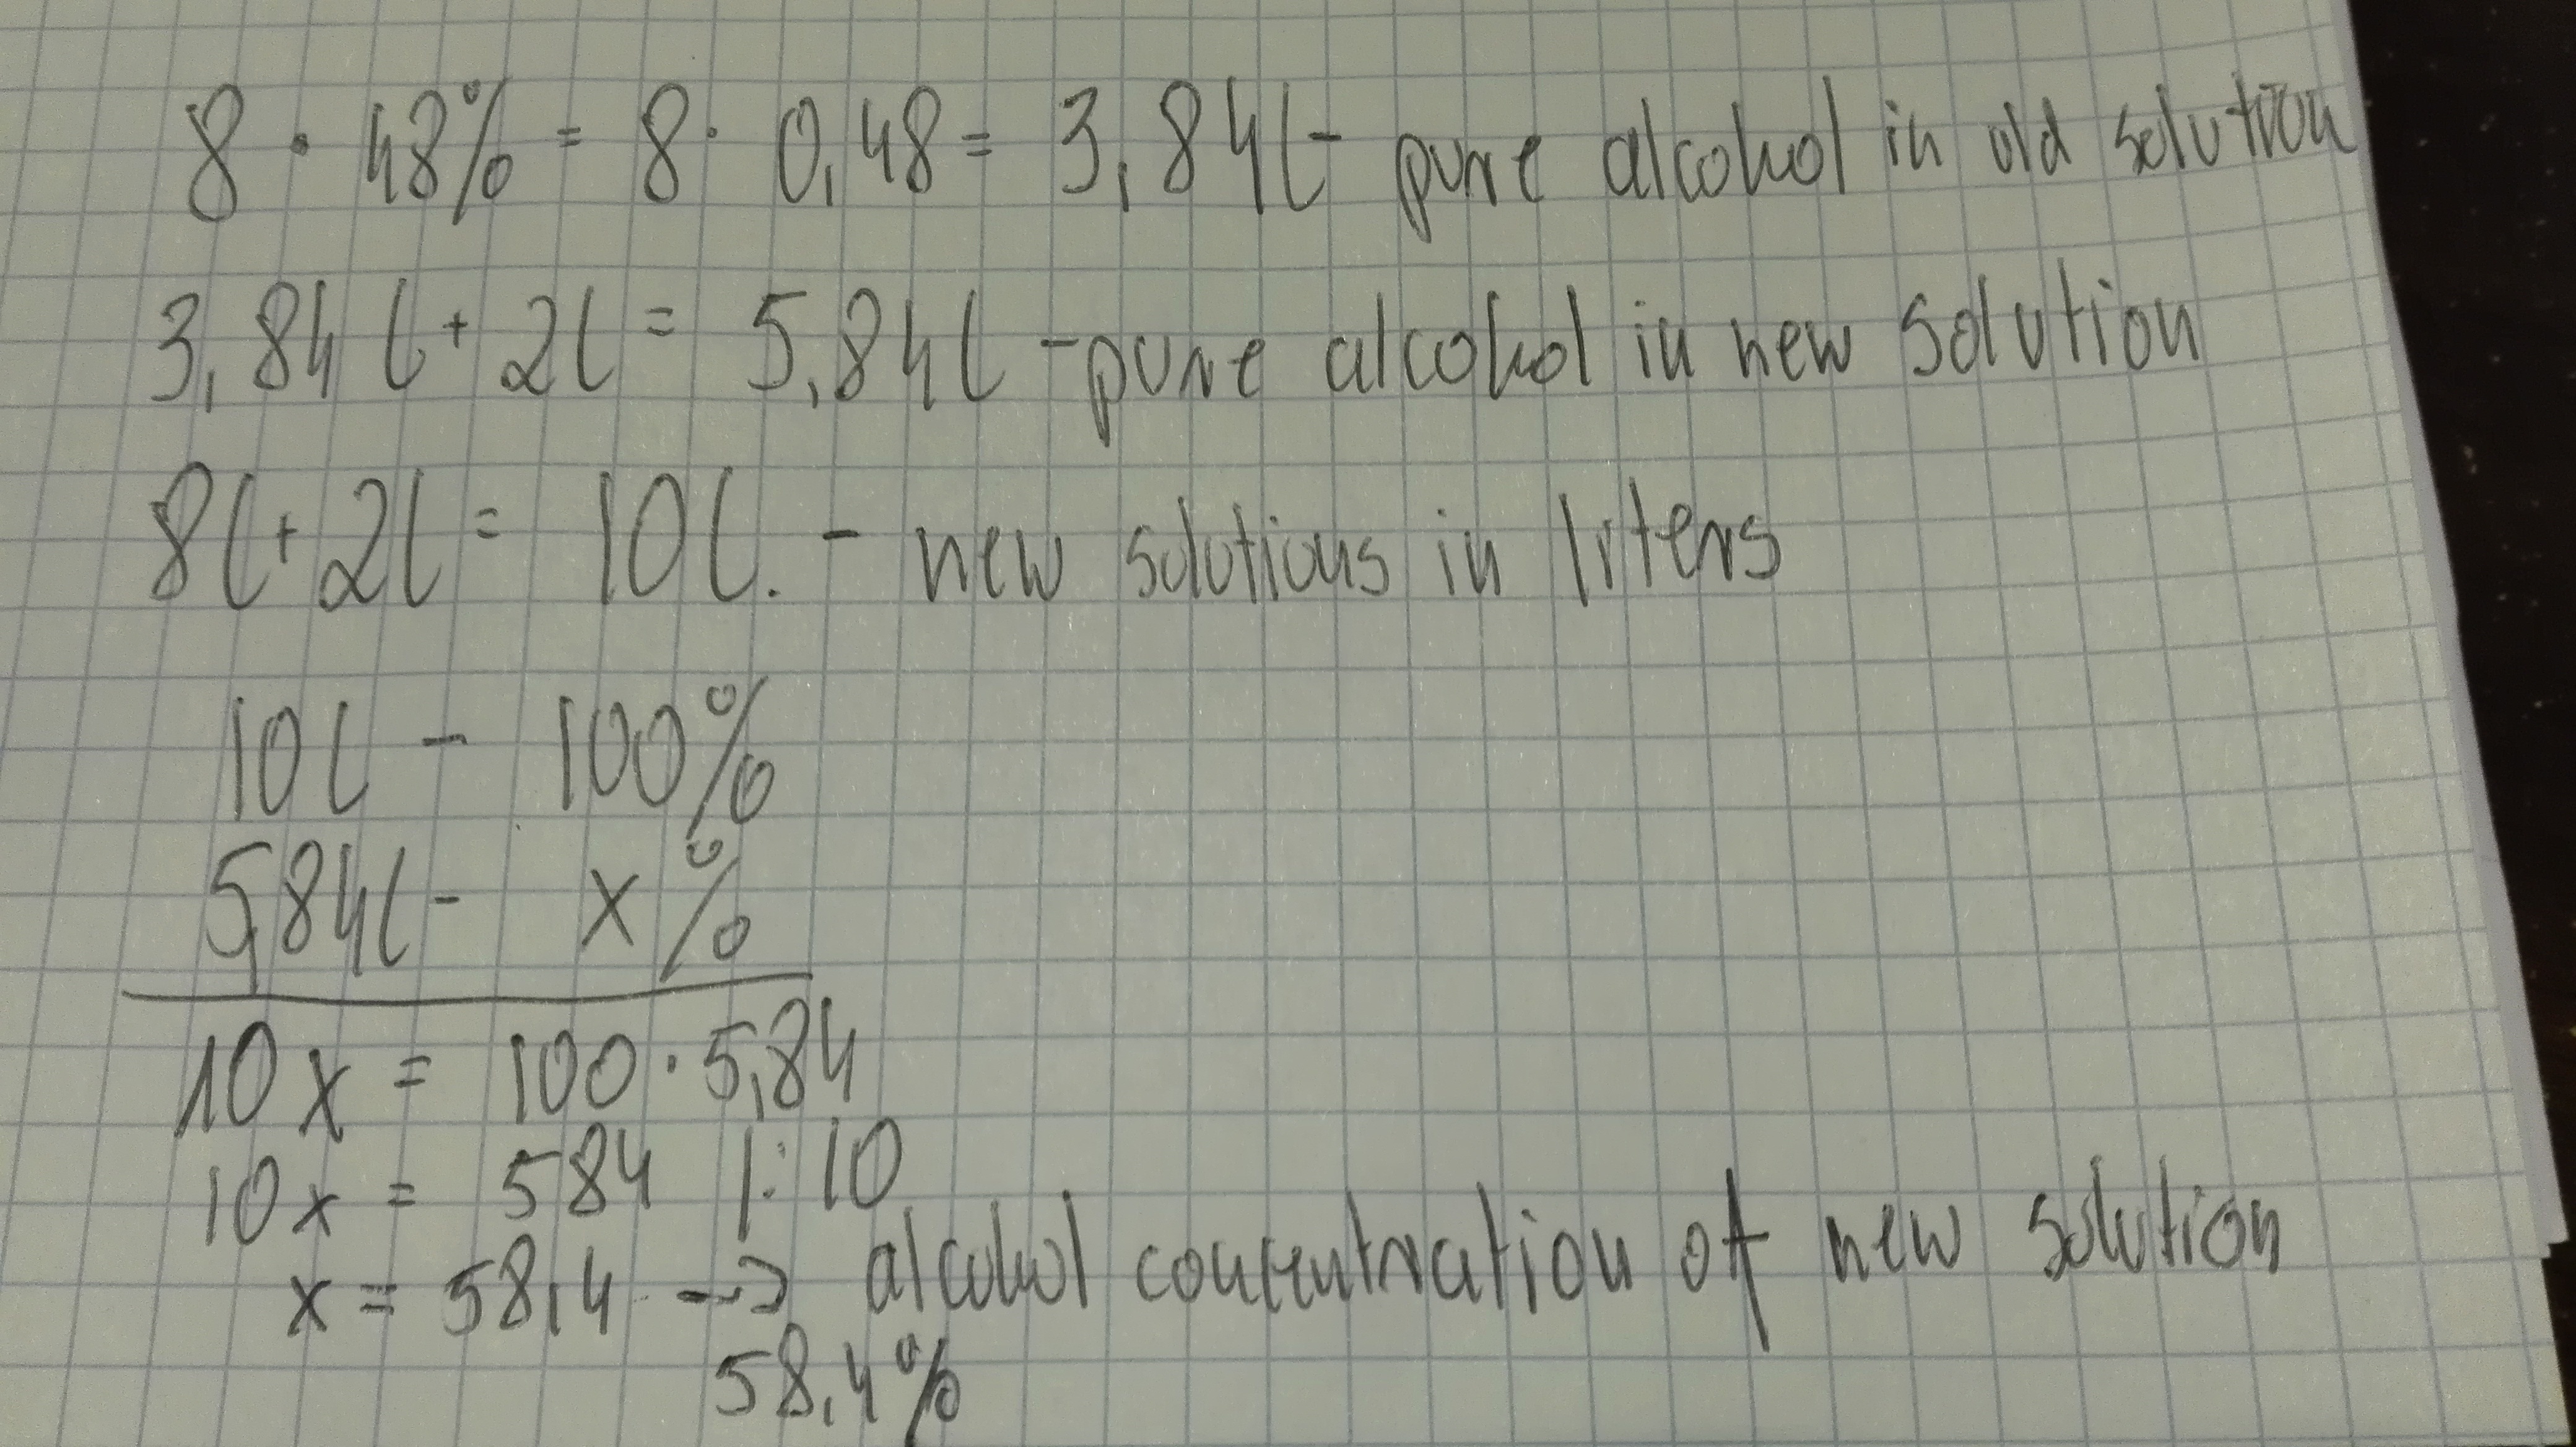 8 · 48% = 8 · 0,48 = 3,84l - pure alcohol in old solution
3,84l + 2l = 5,84l - pure alcohol in new solution
8l + 2l = 10l. - new solutions in liters
10l - 100%
5,84l - x%
10x = 100 · 5,84
10x = 584 |:10
x = 58,4 --> alcohol concentration of new solution
58,4%